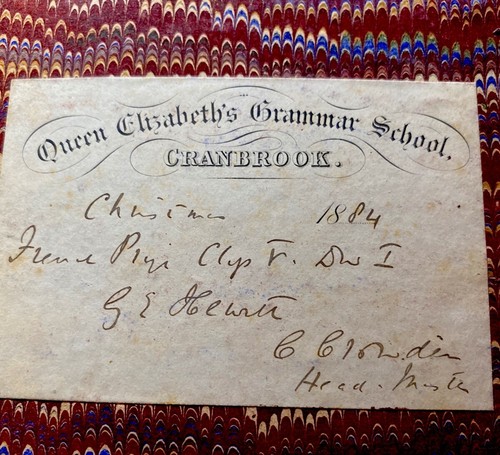 Queen Elizabeth's Grammar School,
CRANBROOK.
Christmas 1884
French Prize Class V. Div I
G E Hewitt
C Crowden
Head-Master